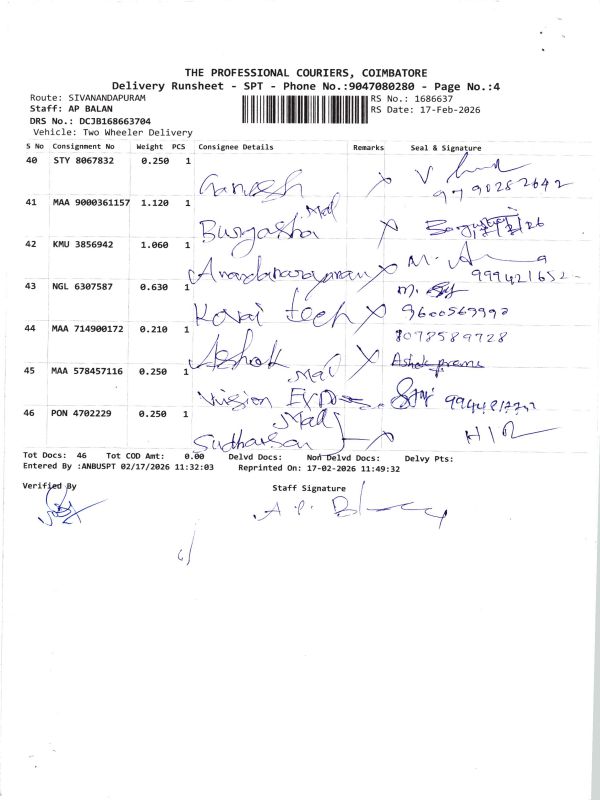 THE PROFESSIONAL COURIERS, COIMBATORE
Delivery Runsheet - SPT - Phone No.:9047080280 - Page No.:4
Route: SIVANANDAPURAM
RS No.: 1686637
Staff: AP BALAN
RS Date: 17-Feb-2026
DRS No.: DCJB168663704
Vehicle: Two Wheeler Delivery
S No Consignment No Weight PCS Consignee Details Remarks Seal & Signature
40 STY 8067832 0.250 1
Ganesh
9790282642
41 MAA 9000361157 1.120 1
Mal
42 KMU 3856942 1.060 1
Anandanarayanan M.
43 NGL 6307587 0.630 1
Kovai tech
44 MAA 714900172 0.210 1
8072589728
Ashok
45 MAA 578457116 0.250 1
46 PON 4702229 0.250 1
Sudharsan
Tot Docs: 46 Tot COD Amt: 0.00 Delvd Docs: Non Delvd Docs: Delvy Pts:
Entered By :ANBUSPT 02/17/2026 11:32:03 Reprinted On: 17-02-2026 11:49:32
Verified By Staff Signature
A.P.